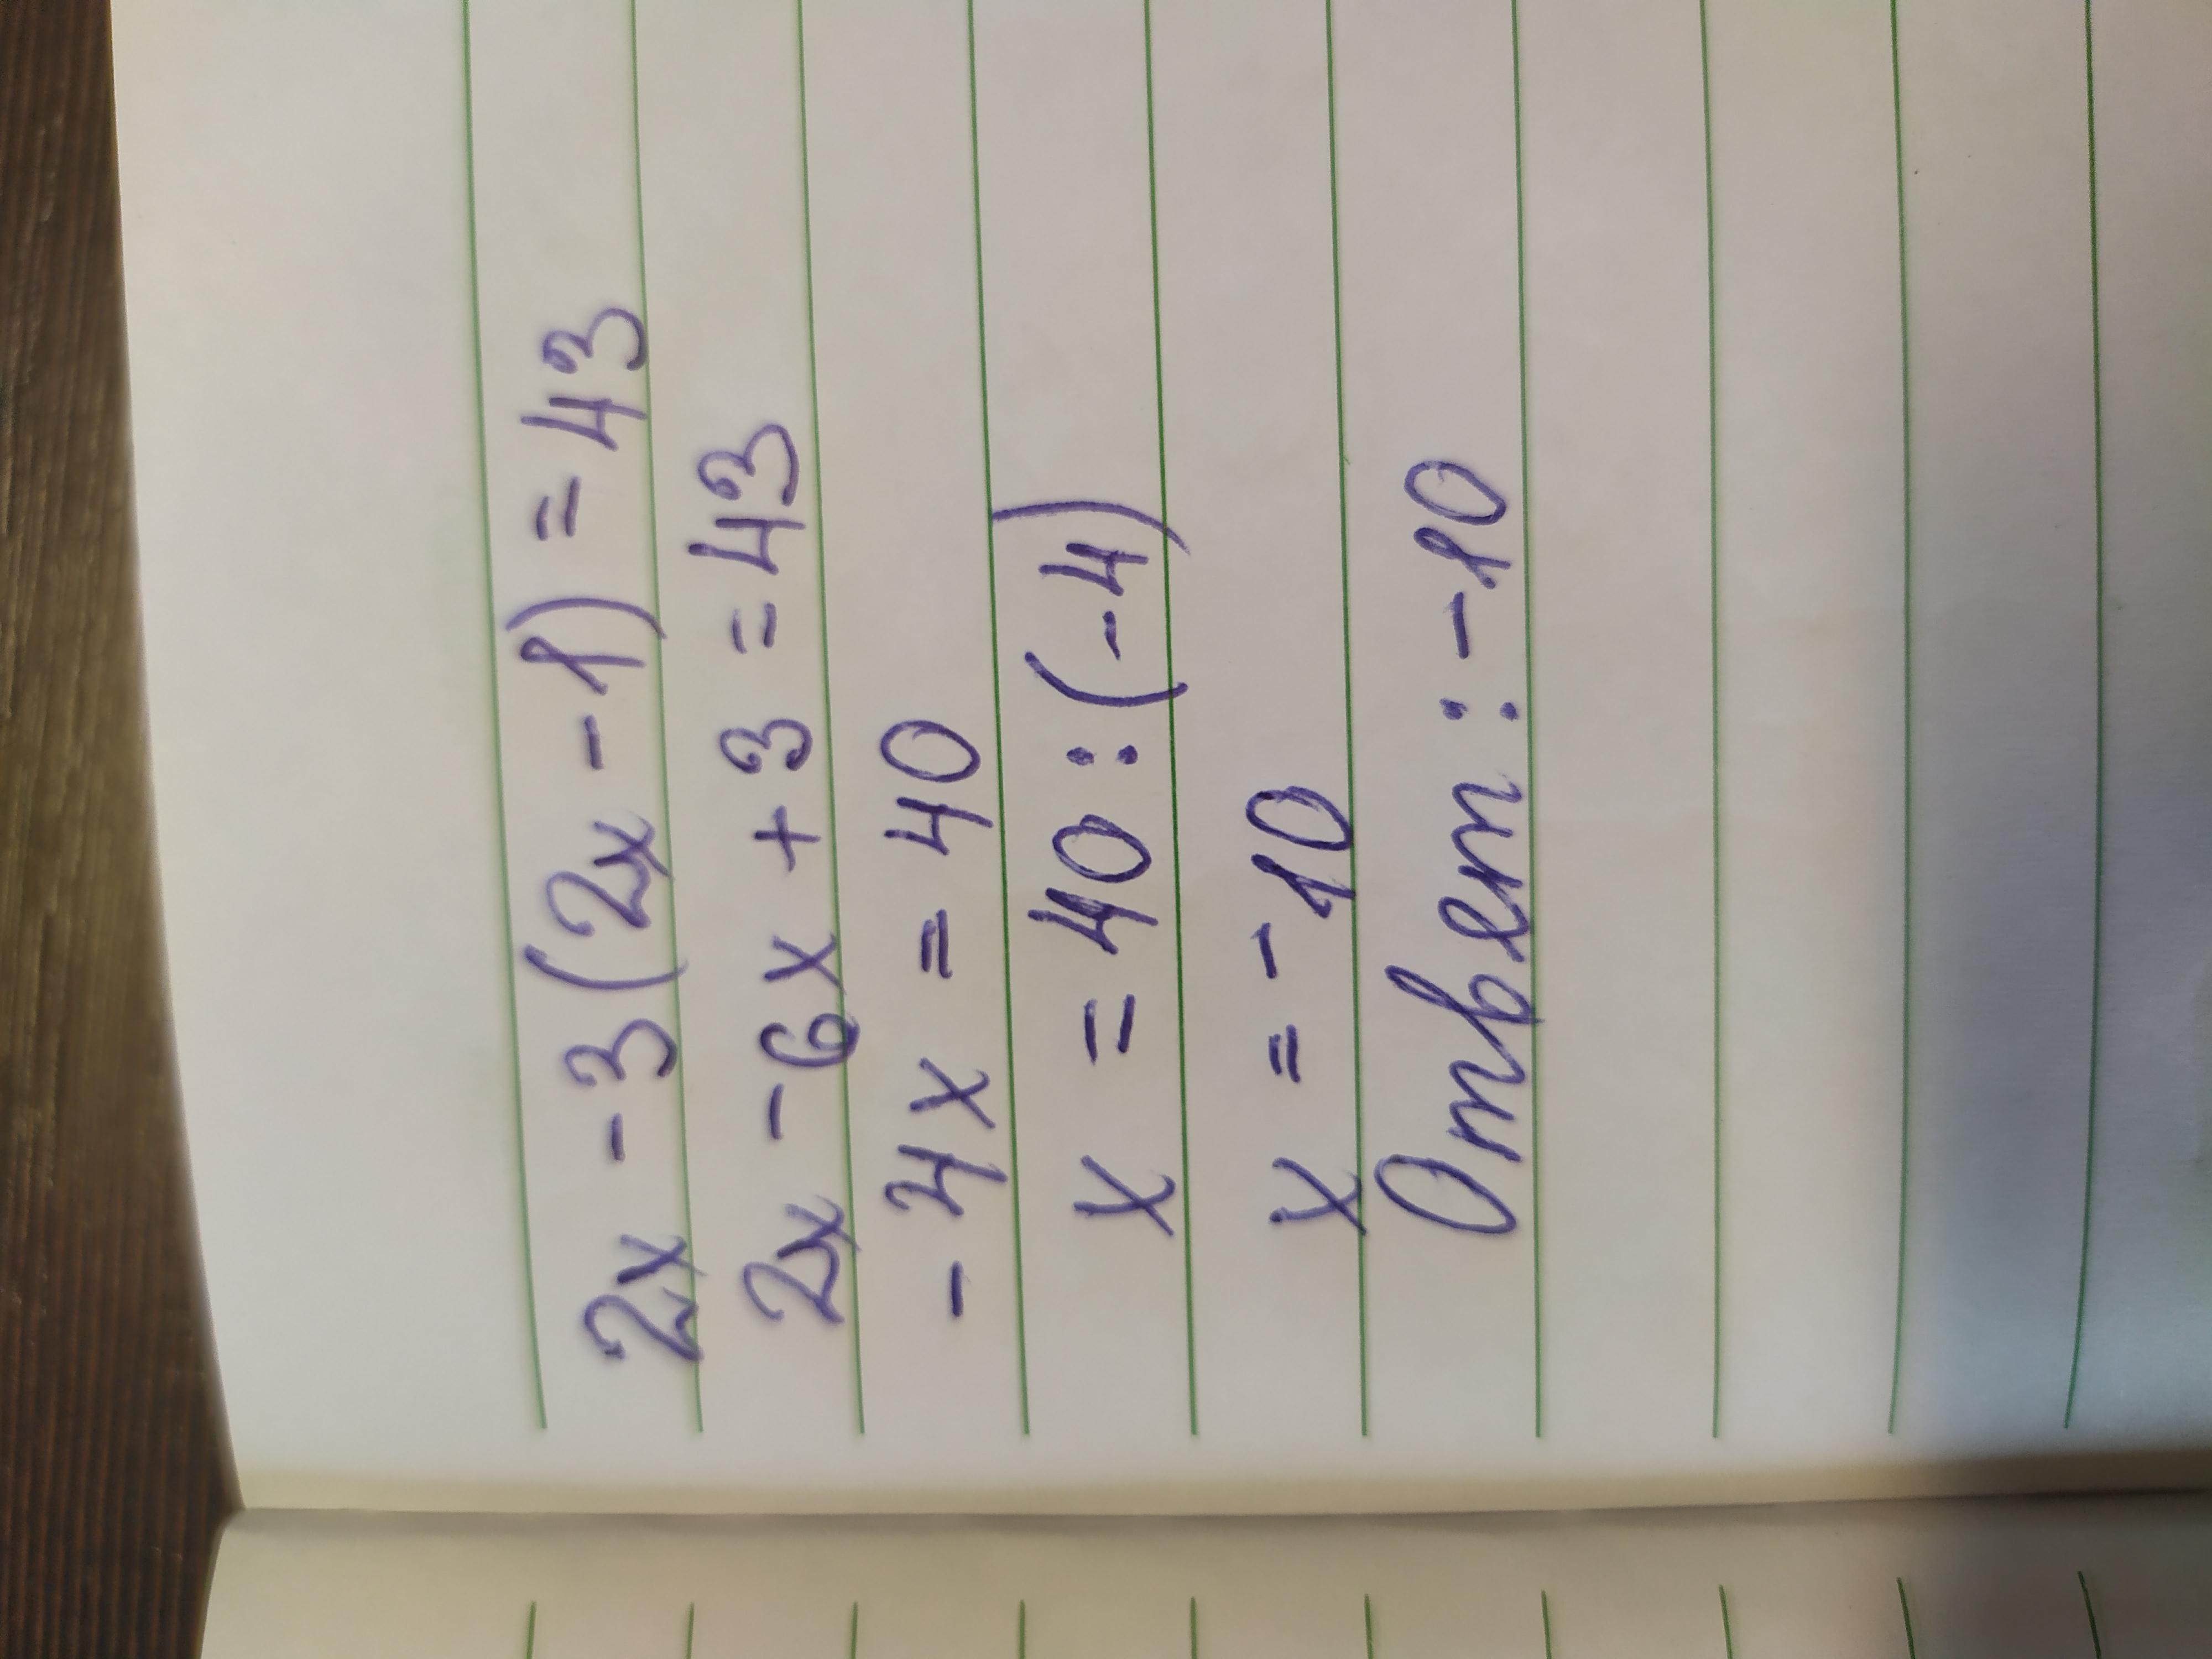 2x - 3(2x - 1) = 43
2x - 6x + 3 = 43
- 4x = 40
x = 40 : (-4)
x = -10
Ответ: -10